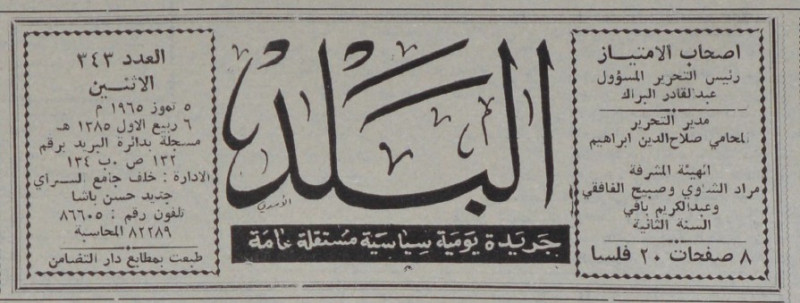 اصحاب الامتياز
رئيس التحرير المسؤول
عبدالقادر البراك
مدير التحرير
المحامي صلاح‌الدين ابراهيم
الهيئة المشرفة
مراد الشاوي وصبيح الغافقي
وعبدالكريم بافي
السنة الثانية
٨ صفحات ٢٠ فلسا
البلد
جريدة يومية سياسية مستقلة عامة
العدد ٣٤٣
الاثنين
٥ تموز ١٩٦٥ م
٦ ربيع الاول ١٣٨٥ هـ
مسجلة بدائرة البريد برقم
١٣٢ ص ٠ب ١٣٤
الادارة : خلف جامع السراي
جديد حسن باشا
تلفون رقم : ٨٦٦٠٥
٨٢٢٨٩ المحاسبة
طبعت بمطابع دار التضامن